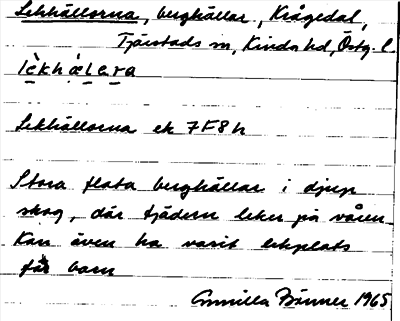 Lekhällorna, berghällar, Krågedal,
Tjärstads sn, Kinda hd, Östg. l.
lèkhàlara
Lekhällorna ek 7F8h
Stora flata berghällar i djup
skog, där tjädern leker på våren
Kan även ha varit lekplats
för barn
Gunilla Bonner 1965